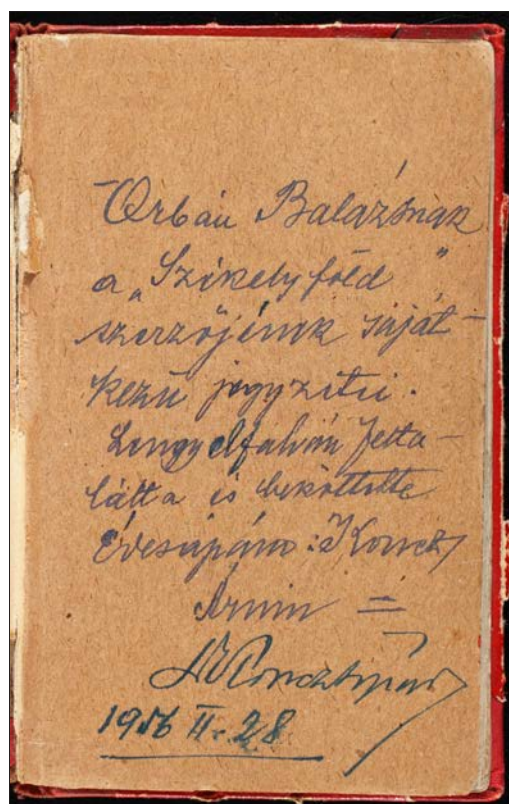 Orbán Balázsnak
a „Székelyföld”
szerzőjének saját-
kezű jegyzetei.
Lengyelfalván felta-
lálta és beköttette
Édesapám: Koncz
Ármin =
1956 II. 28